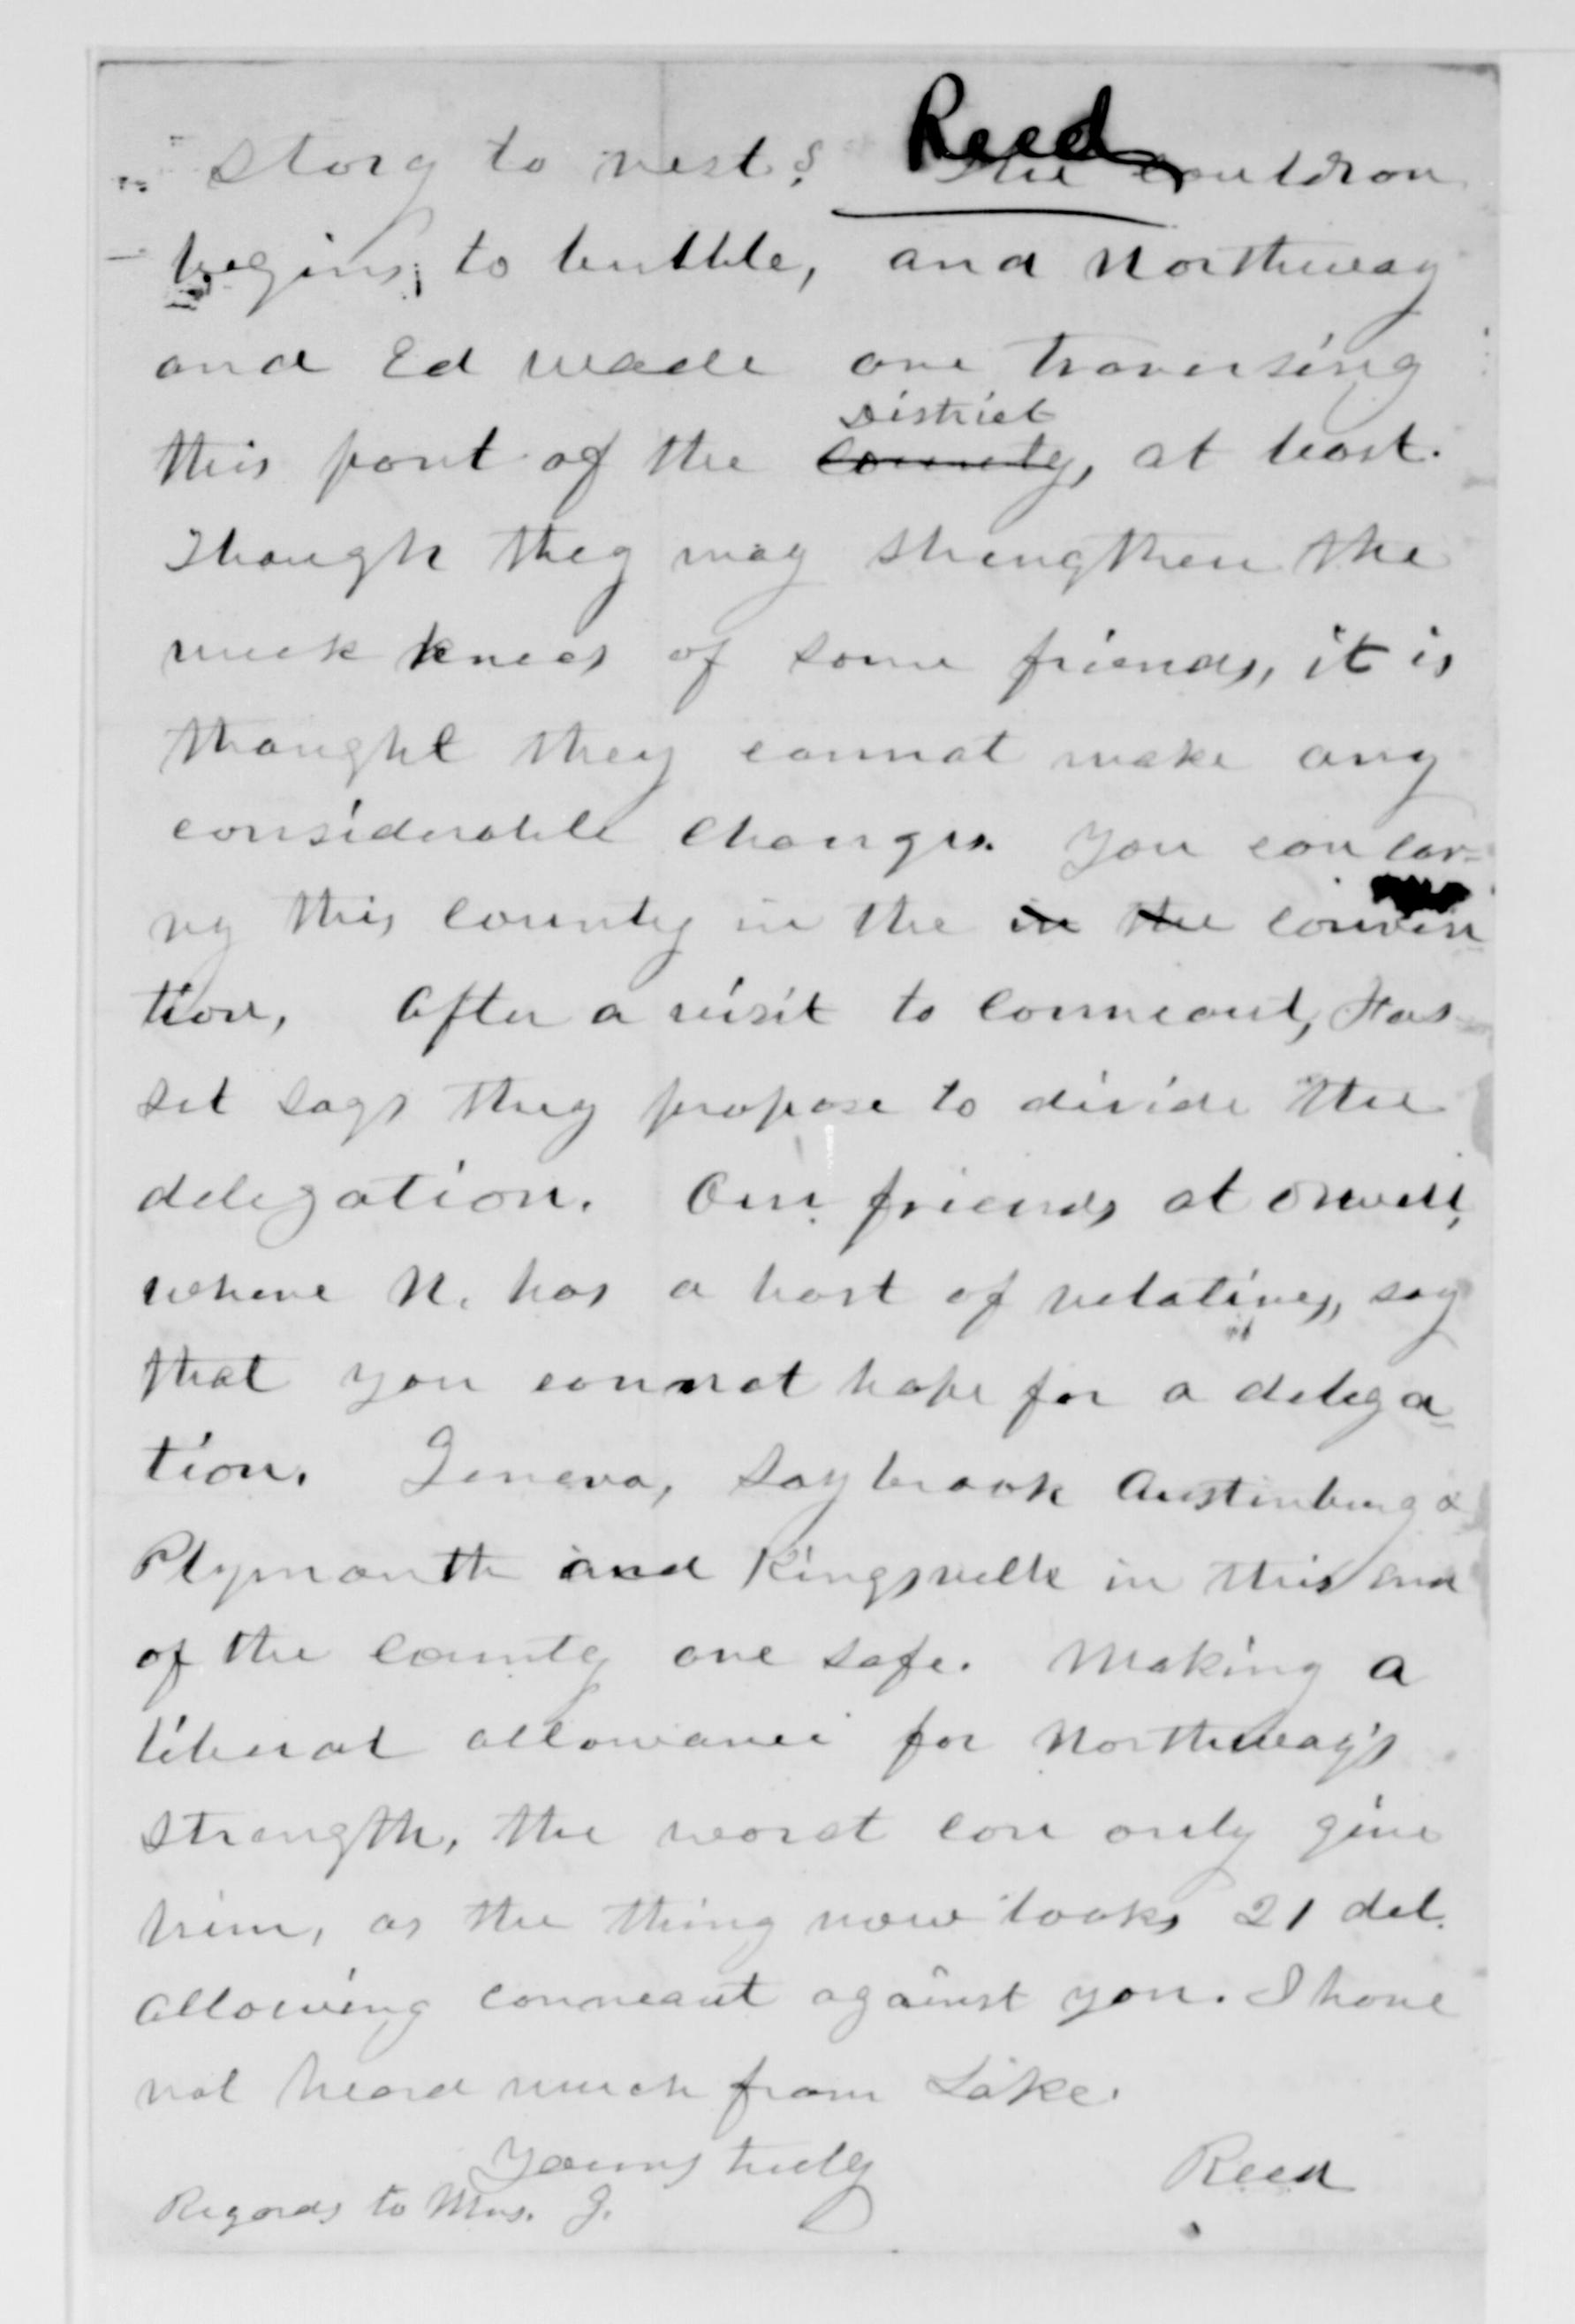 Reed
story to rest? The cauldron
begins to bubble, and Northway
and Ed Wade are traversing
District
this part of the county, at least.
Though they may strengthen the
weak knees of some friends, it is
thought they cannot make any
considerable changes. You can car-
ry this county in the in the conven
tion, After a visit to Conneaut, Has
set says they propose to divide the
delegation. Our friends at Orwell,
where N. has a host of relatives, say
that you cannot hope for a delega
tion. Geneva, Saybrook Austinburg &
Plymouth and Kingsville in this end
of the county are safe. Making a
liberal allowance for Northway's
strength, the worst can only give
him, as the thing now looks 21 del.
allowing Conneaut against you. I have
not heard much from Lake.
Yours truly
Reed
Regards to Mrs. G.